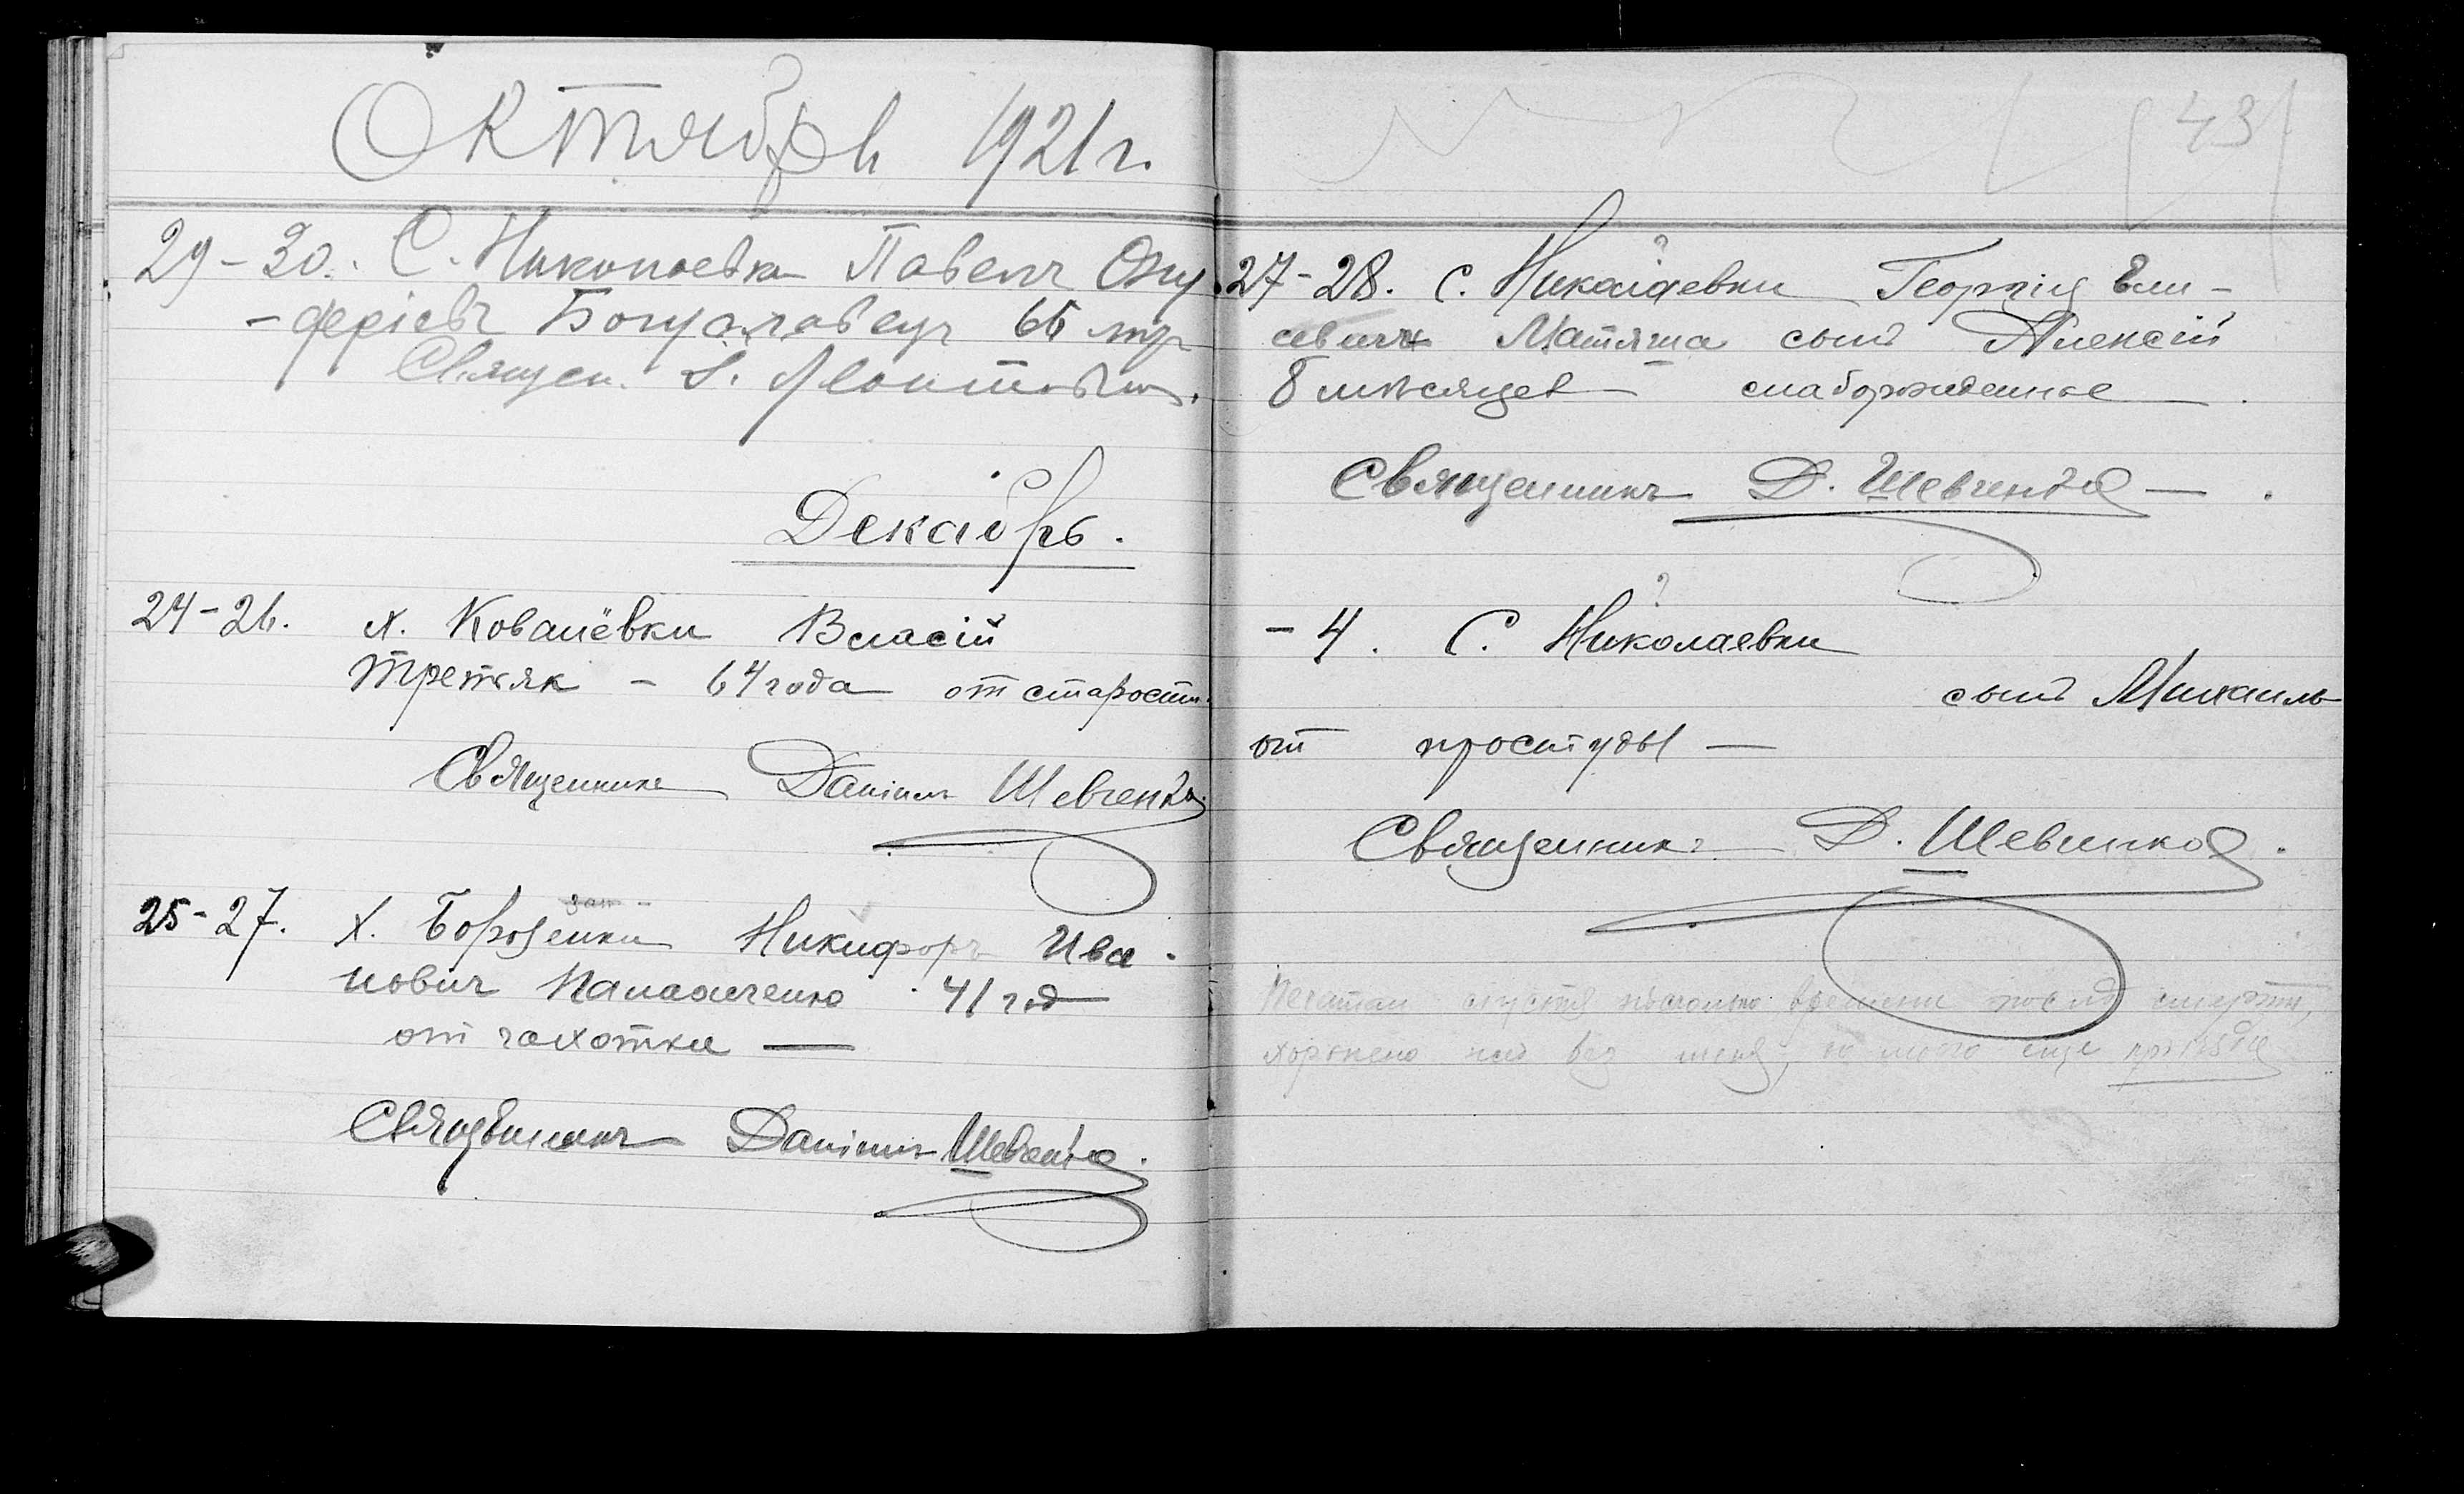 Октябрь 1921 г.
29-30. С. Николаевка Павелъ Ону
-феріевъ Богуславецъ 65 лѣтъ
Священ.
Декабрь.
24-26. х. Ковалёвки Власій
Третьяк - 64 года от старости.
Священникъ Даніилъ Шевченко.
25-27. х. Никифоръ Ива-
новичъ 41 год
от чахотки —
Священникъ Даніилъ Шевченко.
43
27-28. с. Николаевки Георгій Ели-
сеевичъ Матяша сынъ Алексѣй
8 мѣсяцев — слаборожденное — .
Священникъ Д. Шевченко — .
?
-4. С. Николаевки
сынъ Михаилъ
от простуды —
Священникъ Д. Шевченко.
спустя времени смерти,
без еще